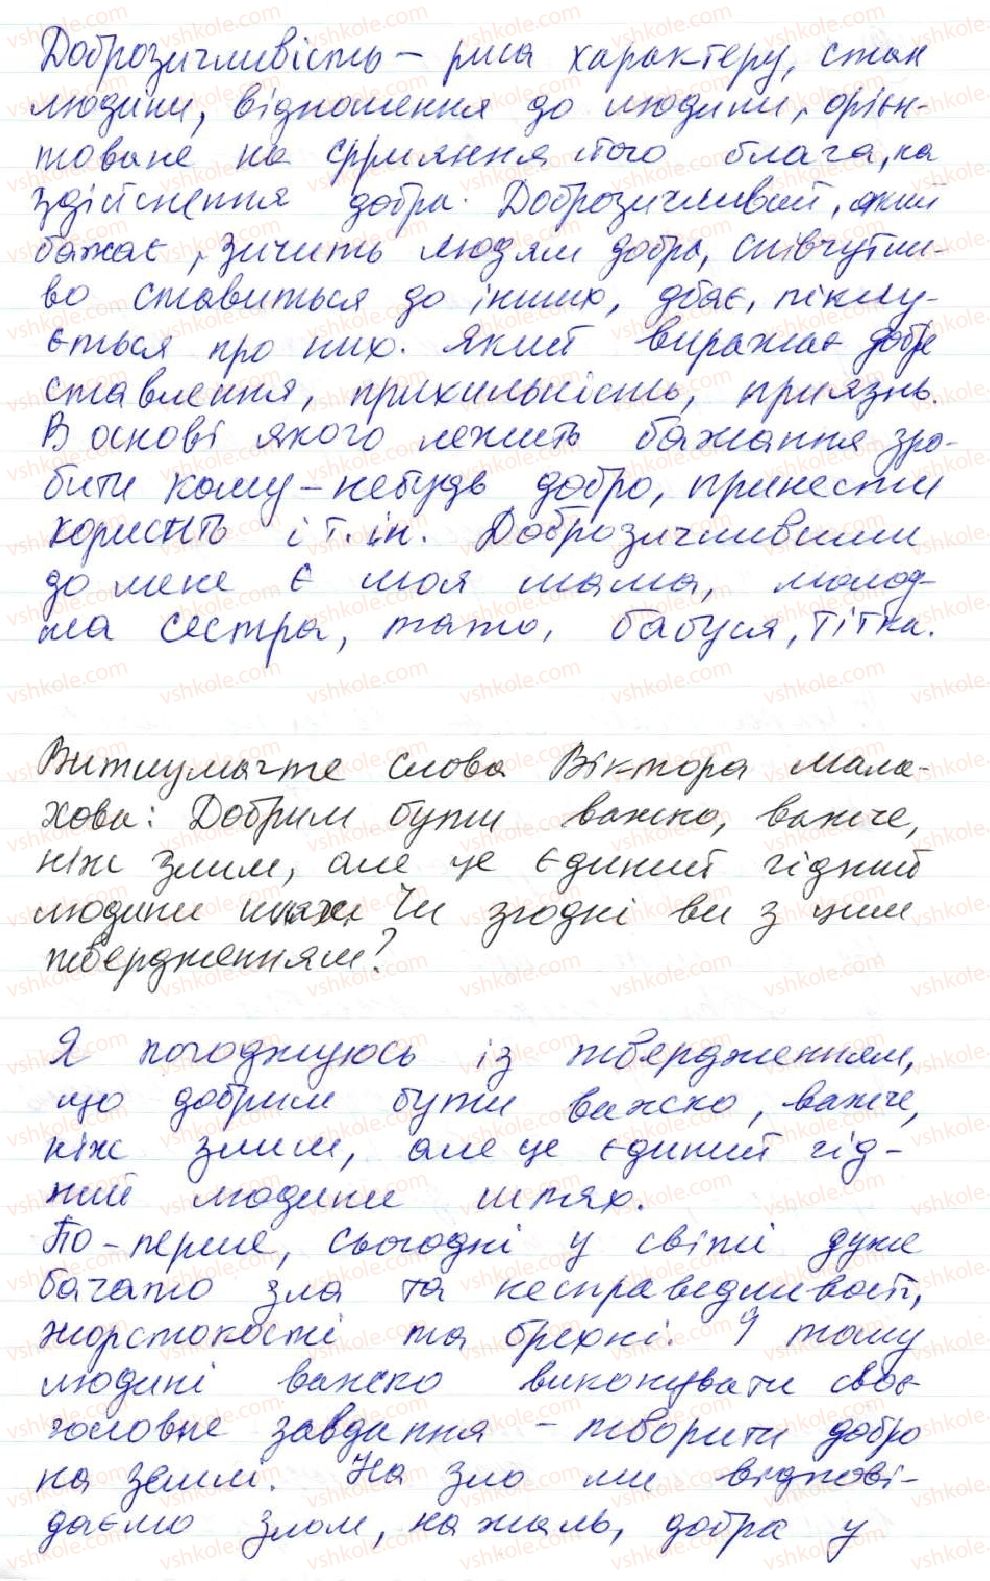 Доброзичливість – риса характеру, стан
людини, відношення до людини, орієн-
товане на сприяння його блага, на
здійснення добра. Доброзичливий, який
бажає, зичить людям добра, співчутли-
во ставиться до інших, дбає, піклу-
ється про них. Який виражає добре
ставлення, прихильність, приязнь.
В основі якого лежить бажання зро-
бити кому-небудь добро, принести
користь і т. ін. Доброзичливими
до мене є моя мама, молод-
ша сестра, тато, бабуся, тітка.
Витлумачте слова Віктора Мала-
хова: Добрим бути важко, важче,
ніж злим, але це єдиний гідний
людини шлях. Чи згодні ви з цим
твердженням?
Я погоджуюсь із твердженням,
що добрим бути важко, важче,
ніж злим, але це єдиний гід-
ний людини шлях.
По-перше, сьогодні у світі дуже
багато зла та несправедливості,
жорстокості та брехні. І тому
людині важко виконувати своє
головне завдання – творити добро
на землі. На зло ми відпові-
даємо злом, на жаль, добра у